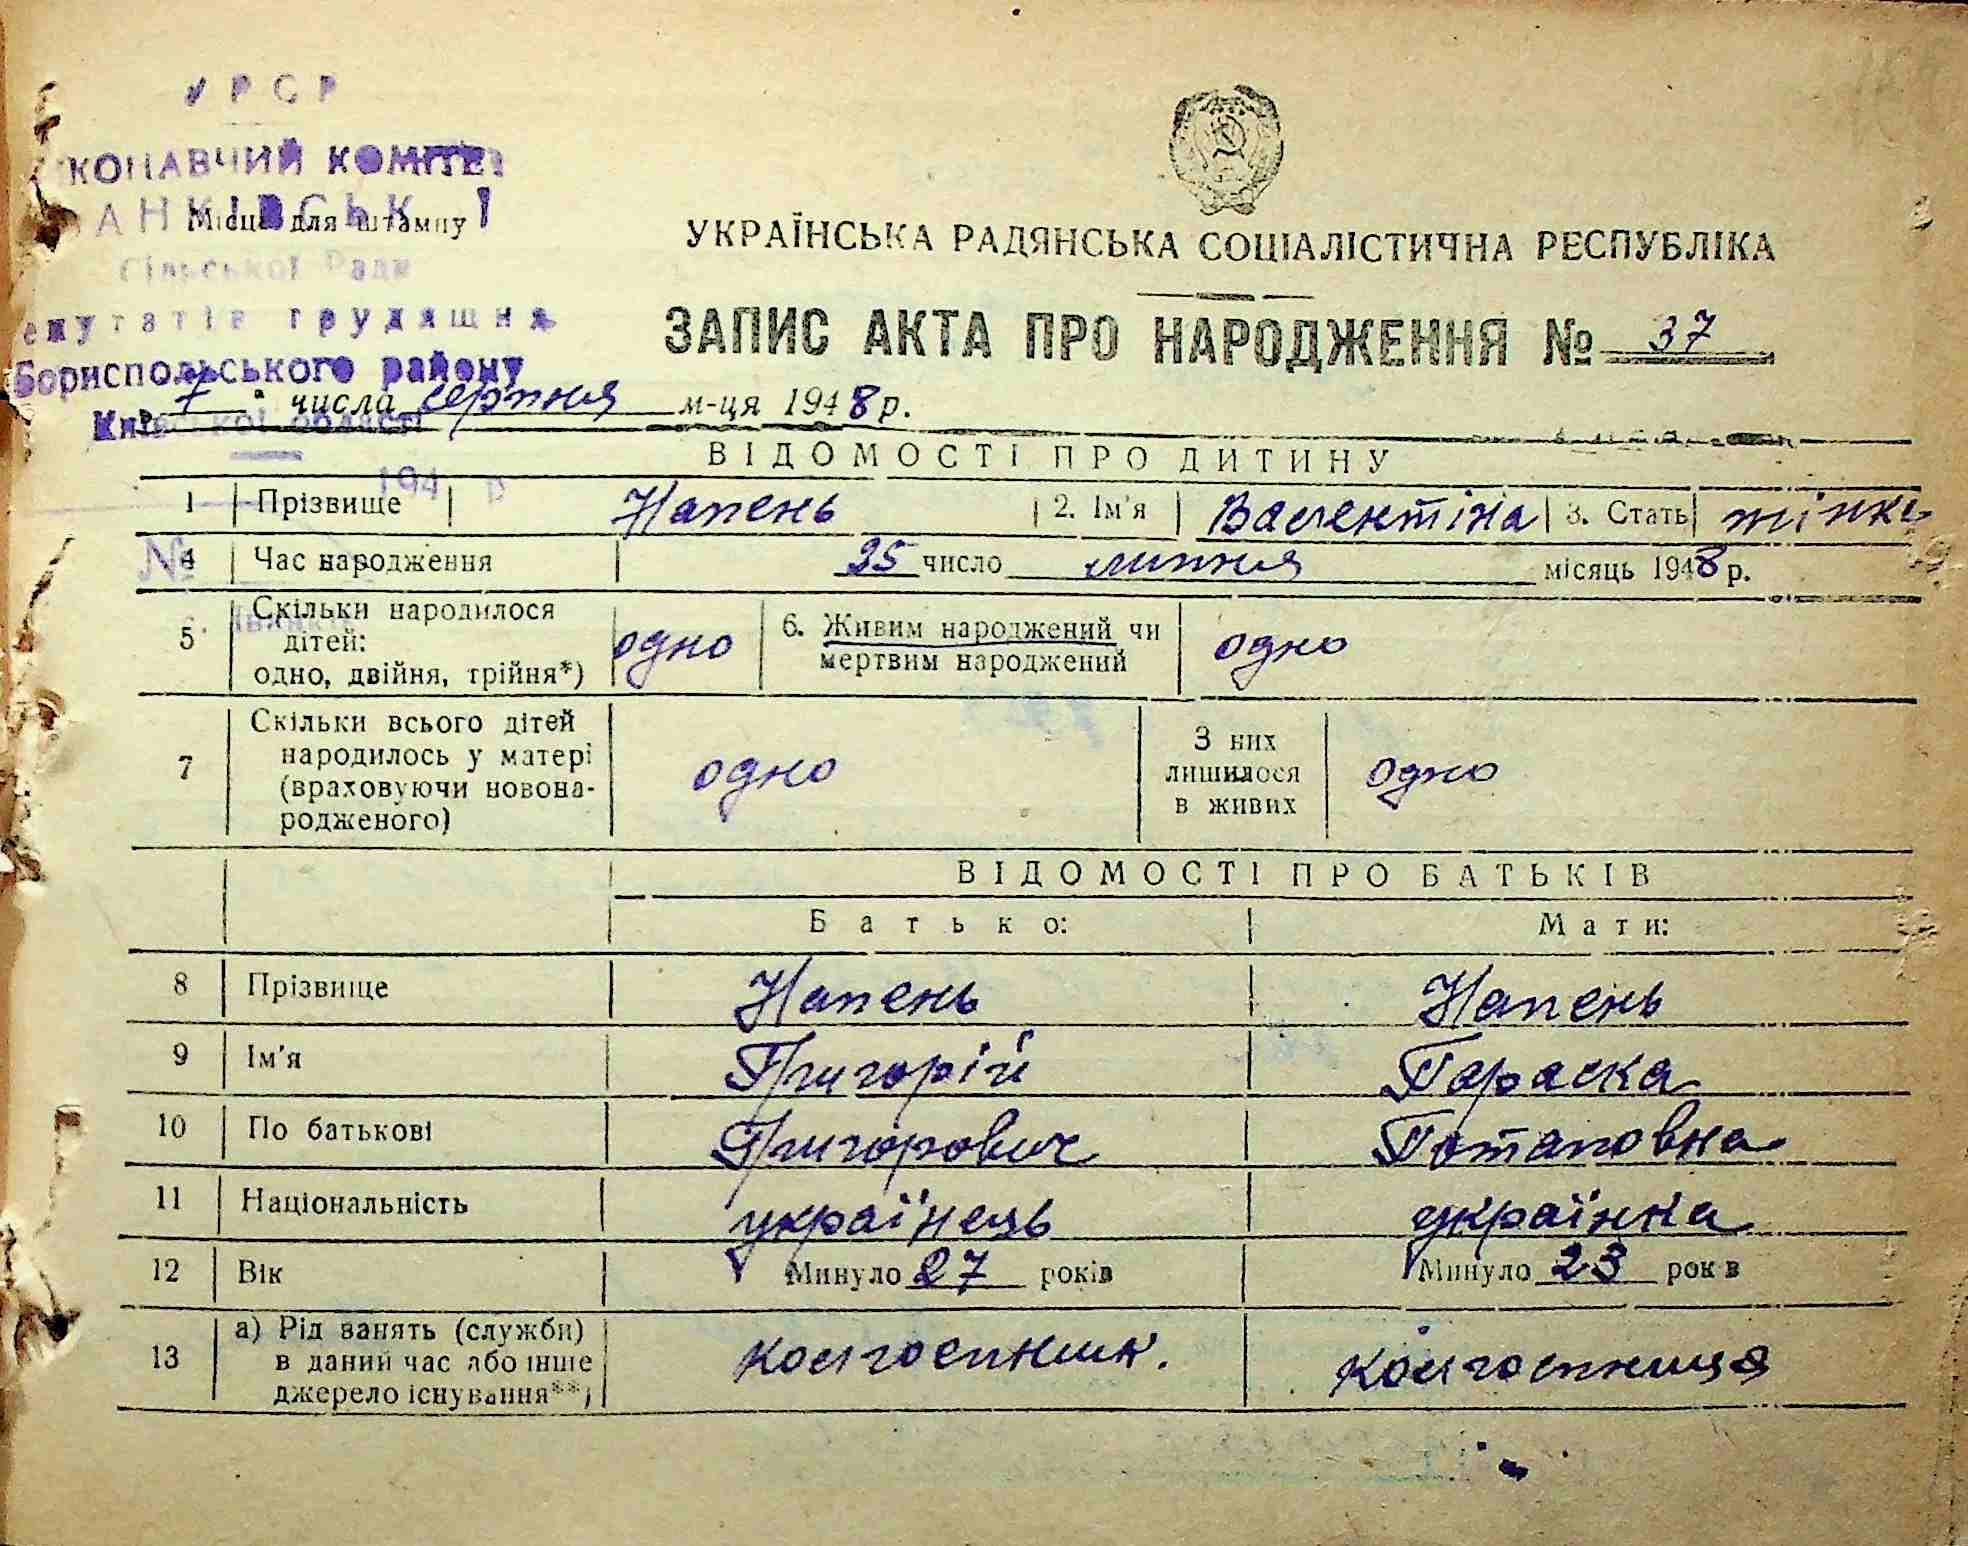 УРСР
КОНАВЧИЙ КОМІТЕТ
АНКІВСЬК
Місце для штампу
Сільської Ради
епутатів трудящих
Бориспольського району
Київської області
194 р
№
УКРАЇНСЬКА РАДЯНСЬКА СОЦІАЛІСТИЧНА РЕСПУБЛІКА
ЗАПИС АКТА ПРО НАРОДЖЕННЯ № 37
7 числа серпня м-ця 1948 р.
ВІДОМОСТІ ПРО ДИТИНУ
1 Прізвище Напень 2. Ім'я Валентіна 3. Стать жінка
4 Час народження 25 число липня місяць 1948 р.
5 Скільки народилося дітей: одно, двійня, трійня*) одно 6. Живим народжений чи мертвим народжений одно
7 Скільки всього дітей народилось у матері (враховуючи новонародженого) одно З них лишилося в живих одно
ВІДОМОСТІ ПРО БАТЬКІВ
Батько: Мати:
8 Прізвище Напень Напень
9 Ім'я Григорій Параска
10 По батькові Григорович Потаповна
11 Національність українець українка
12 Вік Минуло 27 років Минуло 23 років
13 а) Рід занять (служби) в даний час або інше джерело існування**) колгоспник. колгоспниця